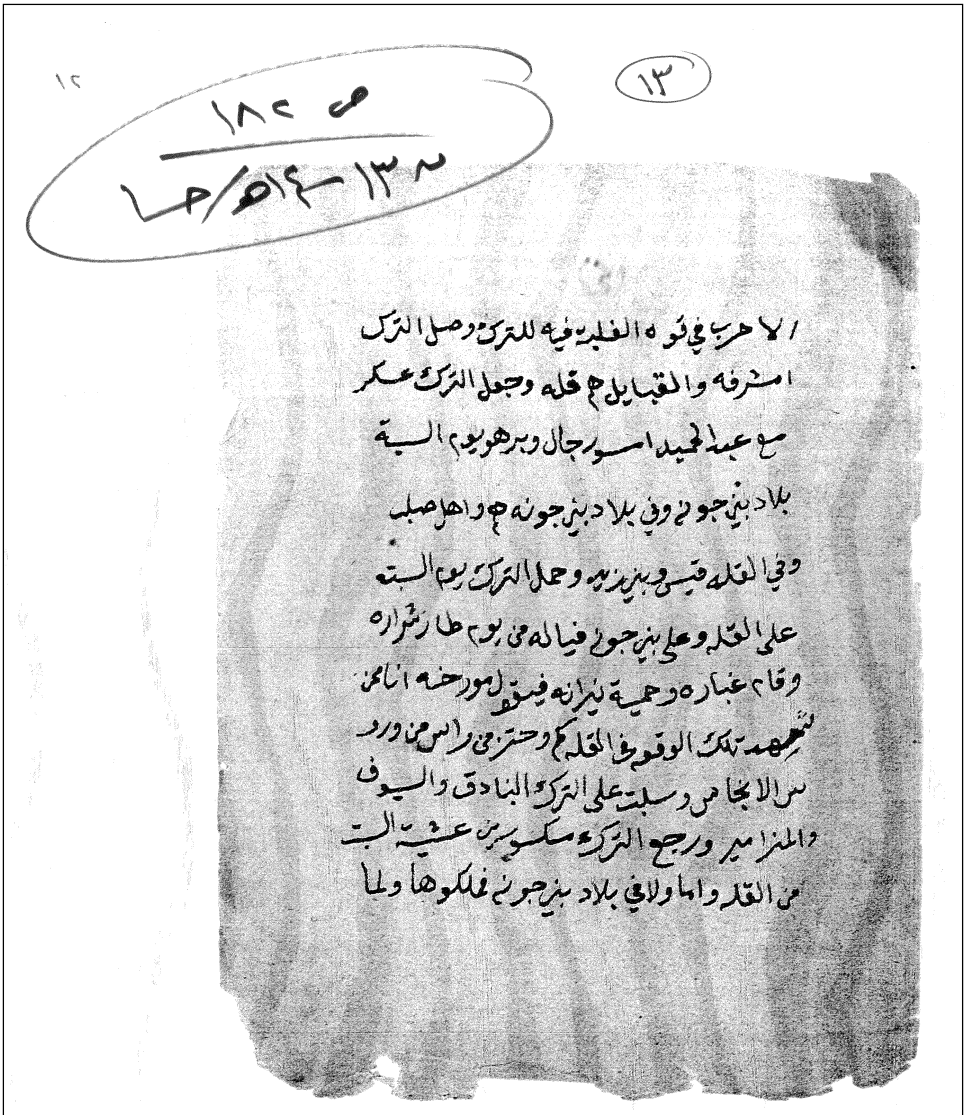 ١٢
١٣
ص ١٨٢
١٣ - ١٤هـ/
الا هربا في قوه الغلبة فيه للترك وصل الترك
امشرفه والقبايل هم قله وجعل الترك عسكر
مع عبدالحميد رجال يوم السبة
بلاد بني جونه وفي بلاد بني جونه هم واهل صلب
وفي القله قيس وبني زيد وحمل الترك يوم السبت
على القله وعلى بني جونه فياله من يوم طار شراره
وقام غباره وحمية نيرانه فيقول مورخه انا ممن
شهد تلك الوقعه في القله كم وحتز من راس من ورد
من وسلبت على الترك البنادق والسيوف
والمزامير ورجع الترك مكسورين عشية السبت
من القله واما ولافي بلاد بني جونه فملكوها ولما